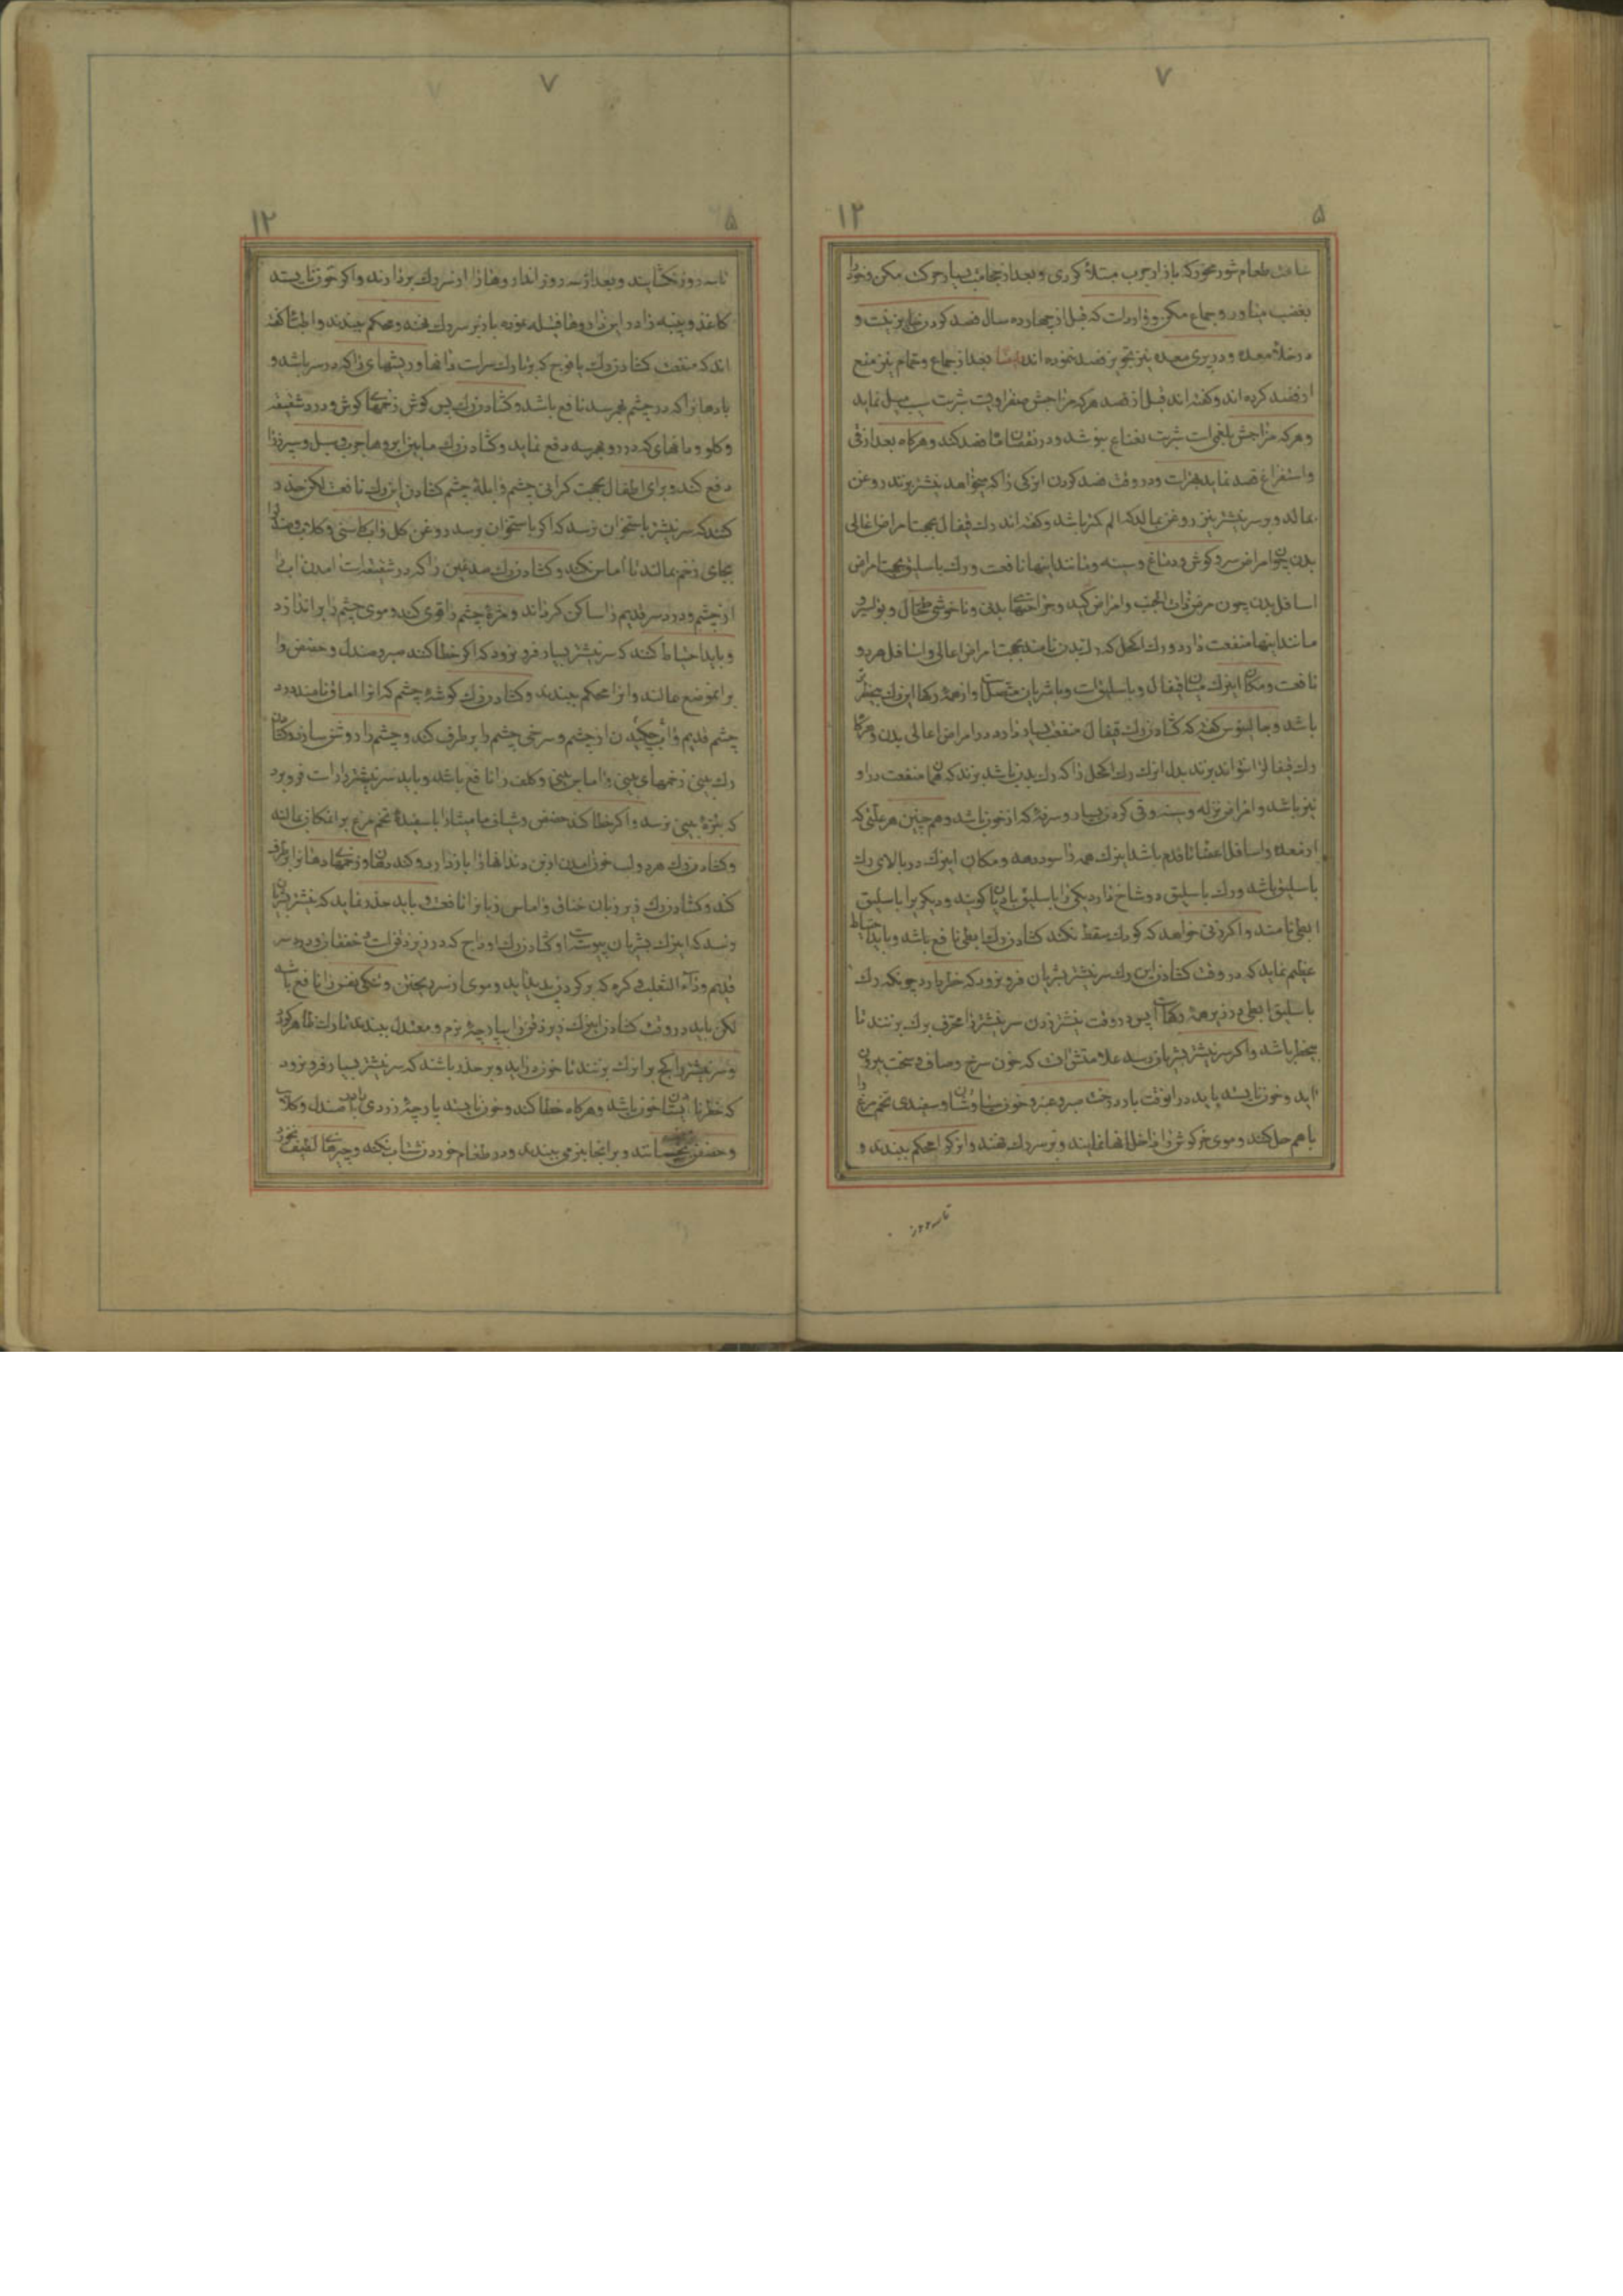 ٧
١٢
٥
ساعت طعام شور مخور که باز از جرب مبتلا گردی و بعد از حجامت بسیار حرکت مکن و خود را
بغضب میاور و جماع مکن و وارد است که قبل از چهارده سال فصد کردن جایز نیست و
در خلأ معده و در پری معده نیز تجویز فصد ننموده اند و ایضا بعد از جماع و حمام نیز منع
از فصد کرده اند و گفته اند قبل از فصد هر که مزاجش صفراویست شربت سیب میل نماید
و هر که مزاجش بلغمی است شربت نعناع بنوشد و در نقصان ماه فصد کند و هرگاه بعد از قی
و استفراغ فصد نماید بهتر است و در وقت فصد کردن ان رکی را که میخواهد نیشتر بزند روغن
بمالد و بر سر نیشتر نیز روغن بمالد که الم کمتر باشد و گفته اند رک قیفال بجهت امراض اعالی
بدن چون امراض سر و گوش و دماغ و سینه و مانند اینها نافعست و رک باسلیق بجهت امراض
اسافل بدن چون مرض ذات الجنب و امراض کبد و جراحتهای بدنی و ناخوشی طحال و بواسیر و
مانند اینها منفعت دارد و رک اکحل که رک بدن نامند بجهت امراض اعالی و اسافل هر دو
نافعست و مکان اینرک میان قیفال و باسلیق است و با شریان متصل است و از همه رکها این رک بیخطرتر
باشد و جالینوس گفته که گشادن رک قیفال منفعت بسیار دارد در امراض اعالی بدن و هرگاه
رک قیفال را نتوانند بزنند بدل انرک رک اکحل را که رک بدن باشد بزنند که همان منفعت در او
نیز باشد و امراض نزله و سینه و قی کردن بسیار و سرفه که از خون باشد و هم چنین هر علتی که
از معده و اسافل اعضا تا قدم باشد اینرک همه را سود دهد و مکان اینرک در بالای رک
باسلیق باشد و رک باسلیق دو شاخ دارد یکی را باسلیق مادیان گویند و دیگری را باسلیق
ابطی نامند و اگر زنی خواهد که کودک سقط نکند گشادن رک ابطی نافع باشد و باید احتیاط
عظیم نماید که در وقت گشادن این رک سر نیشتر بشریان فرو نرود که خطر دارد چونکه رک
باسلیق ابطی در زیر همه رکها است پس در وقت نیشتر زدن سر نیشتر را محرف برک بزنند تا
بیخطر باشد و اگر سر نیشتر بشریان رسد علامتش انست که خون سرخ و صاف و سخت بیرون
اید و خون نایسته باید در انوقت بارد درخت صبر و عنبر و خون سیاوشان و سفیدی تخم مرغ را
با هم حل کند و موی خرگوش را داخل انها نمایند و بر سر رک نهند و انرا محکم ببندند و
تا سه روز
٧
١٢
٥
تا سه روز نگشایند و بعد از سه روز اندار و ها را از سر رک بردارند و اگر خون نایستد
کاغذ و پنبه را در این داروها فتیله نموده باز بر سر رک نهند و محکم ببندند و اطبا گفته
اند که منفعت گشادن رک یافوخ که بر تارک سر است دانها و ریشهای را که در سر باشد و
بادها را که در چشم بهم رسد نافع باشد و گشادن رک پس گوش زخمهای گوش و درد شقیقه
و گلو و دانهای که در رو بهم رسد دفع نماید و گشادن رک مابین ابروها جرب و سبل و سر درد را
دفع کند و برای اطفال بجهت گرانی چشم و ابله چشم گشادن این رک نافعست لکن حذر
کنند که سر نیشتر باستخوان نرسد که اگر باستخوان برسد روغن گل و اب کاسنی و گلاب و صندل را
بجای زخم بمالند تا اماس نکند و گشادن رک صدغین را که در شقیقه است امدن اب را
از چشم و درد سر قدیم را ساکن گرداند و مژه چشم را قوی کند و موی چشم را براندازد
و باید احتیاط کنند که سر نیشتر بسیار فرو نرود که اگر خطا کنند صبر و صندل و حضض را
برانموضع بمالند و انرا محکم ببندند و گشادن رک گوشه چشم که انرا اماق نامند درد
چشم قدیم و اب چکیدن از چشم و سرخی چشم را بر طرف کند و چشم را روشن سازد و گشادن
رک بینی زخمهای بینی و اماس بینی و کلف را نافع باشد و باید سر نیشتر را راست فرو برد
که بتره بینی نرسد و اگر خطا کند حضض و شیاف مامیثا را با سفیده تخم مرغ بر انمکان بمالند
و گشادن رک هر دو لب خون امدن از بن دندانها را باز دارد و گند دهان و زخمهای دهان را بر طرف
کند و گشادن رک زیر زبان خناق و اماس زبان را نافعست و باید حذر نماید که نیشتر بشریان
نرسد که اینرک بشریان پیوسته است و گشادن رک اوداج که در زیر ذقن است خفقان و درد سر
قدیم و داء الثعلب و گره که بر گردن پدید اید و موی از سر ریختن و تنگی نفس را نافع باشد
لکن باید در وقت گشادن اینرک زیر ذقن را بپارچه نرم و معتدل ببندند تا رک ظاهر گردد
و سر نیشتر را کج بر انرک بزنند تا خون در اید و بر حذر باشند که سر نیشتر بسیار فرو نرود
که خطر نایستادن خون باشد و هرگاه خطا کند و خون نایسته پارچه زردی با صندل و گلاب
و حضض بخیسانند و بر انجا بنرمی ببندند و در طعام خوردن شتاب نکند و چیزهای لطیف بخورد